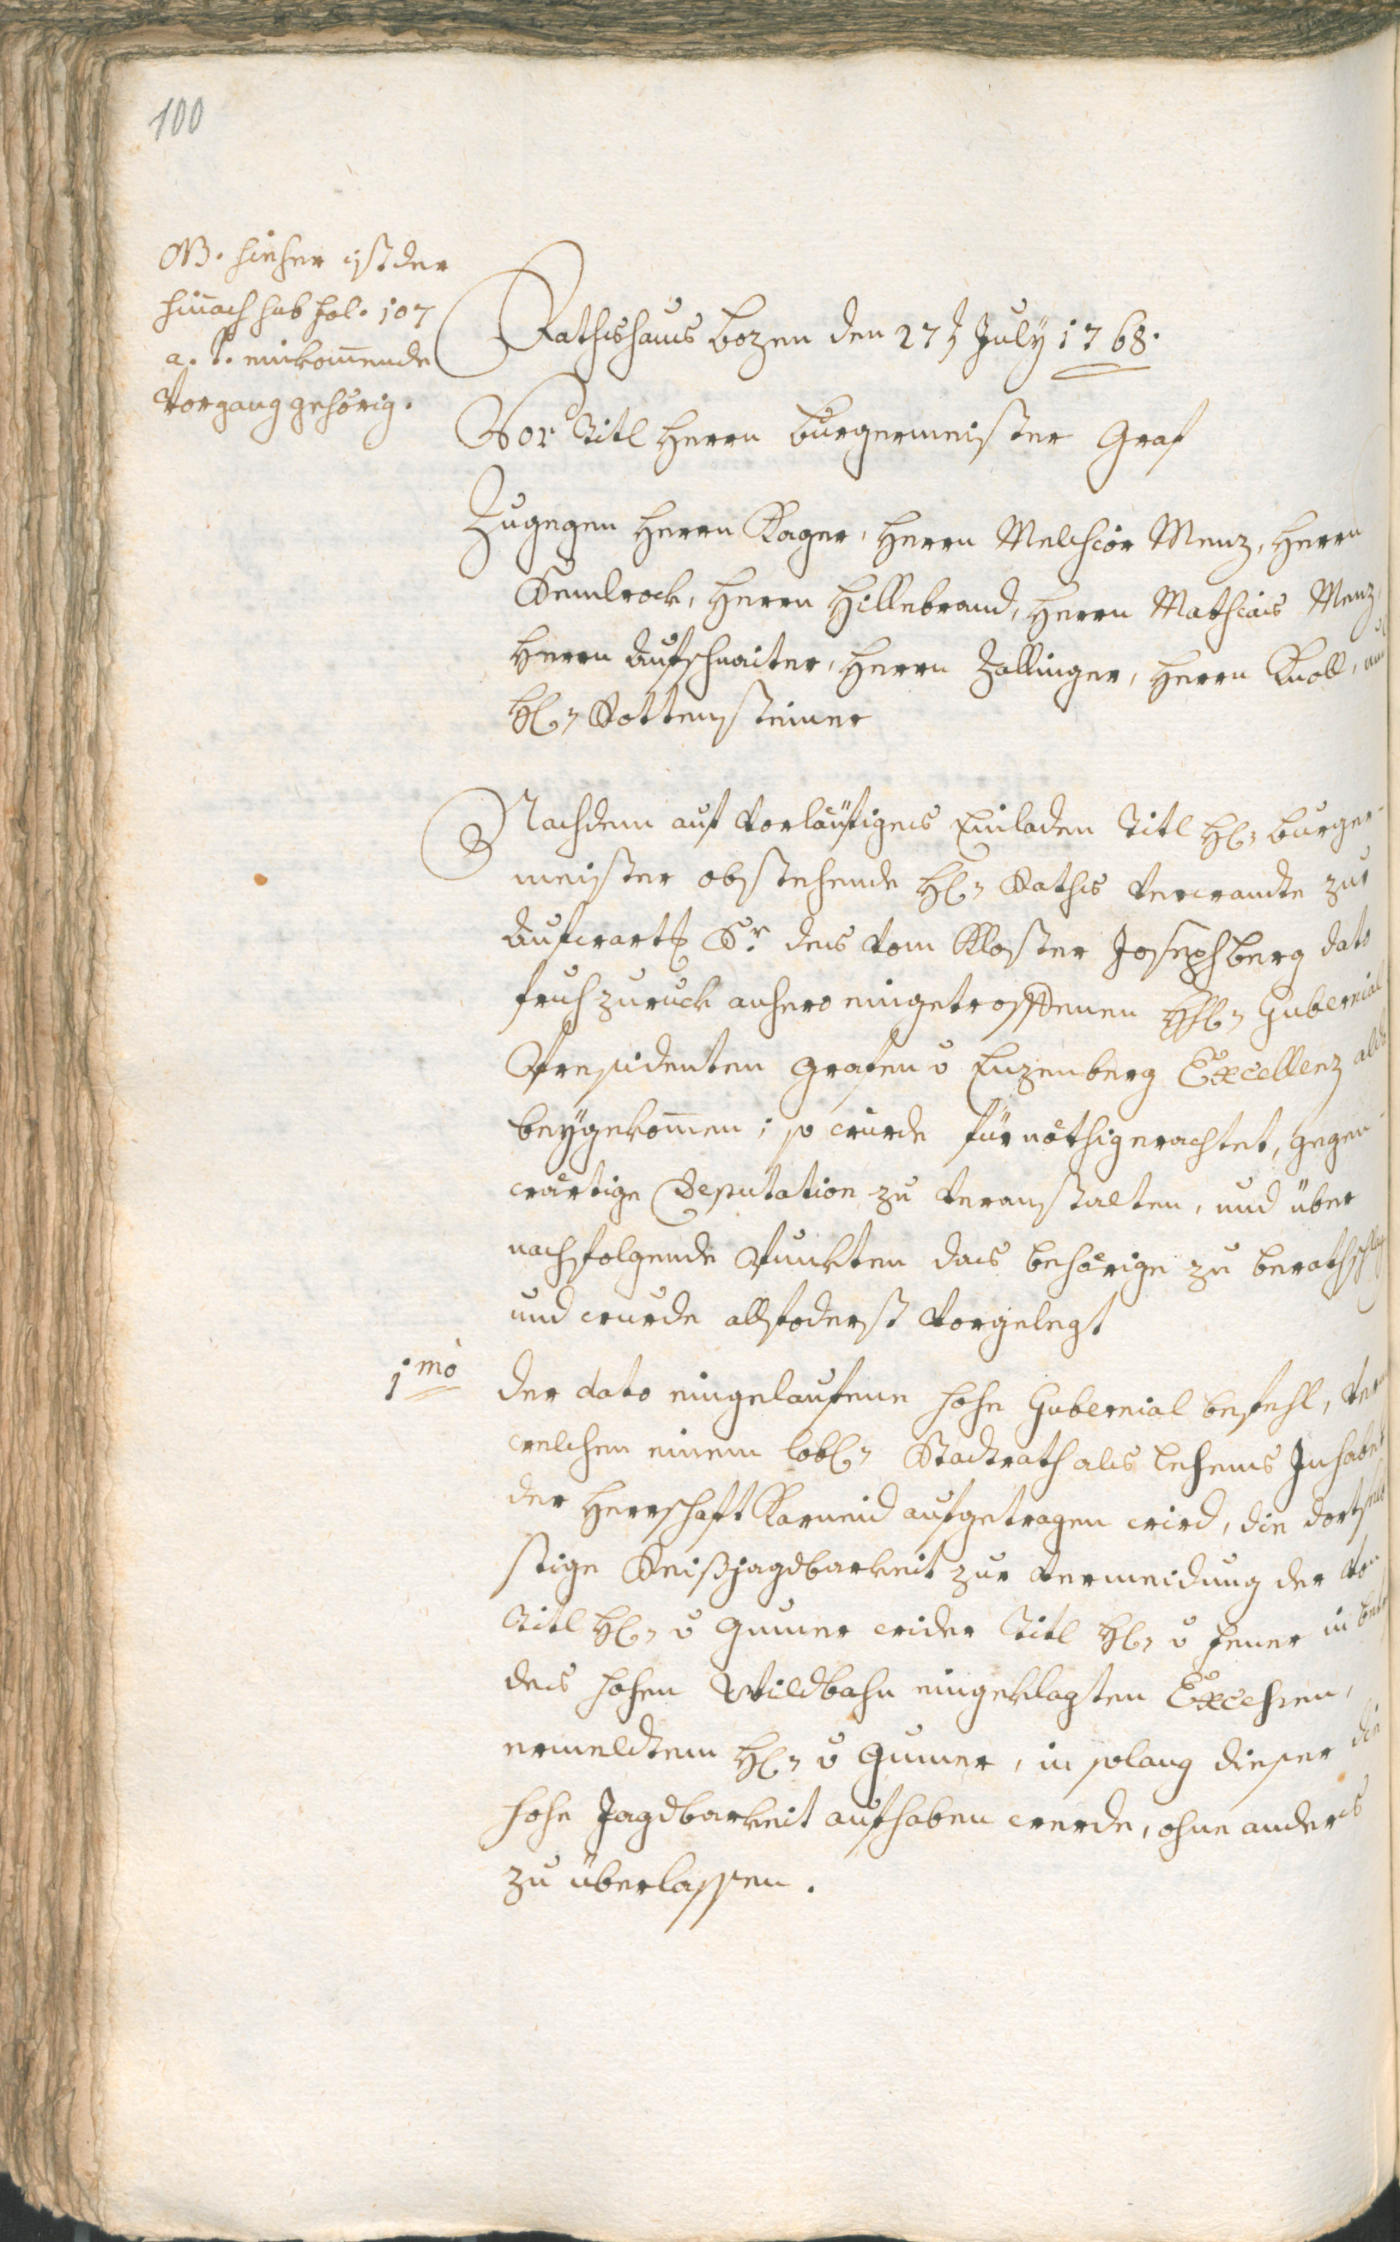 100
NB. hieher ist der
hinach sub fol. 107
a. t. einkom̄ende
Vorgang gehörig.
Rathshaus bozen den 27t July 1768.
Vor Titl Herrn burgermeister Graf
Zugegen Herrn Kager, Herrn Melchior Menz, Herrn
Semlrock, Herrn Hillebrand, Herrn Mathias Menz,
Herrn Aufschnaiter, Herrn Zallinger, Herrn Knoll, und
H: Rottensteiner
Nachdem auf vorläufiges Einladen Titl H: burger-
meister obstehende H: Raths verwandte zur
Aufwart Sr. des vom Kloster Josephberg dato
fruh zuruck anhero eingetroffenen H: Gubernial
Presidenten Grafen v Enzenberg Excellenz alda
beygekom̄en; so wurde für nöthig erachtet, gegen-
wärtige Deputation zu veranstalten, und über
nachfolgende Punkten das behörige zu berathschlagen
und wurde allfoderst vorgelegt
1mò
der dato eingelaufene hohe Gubernial befehl, vermög
welchen einem lobl: Stadtrath als Lehens Inhaber
der Herrschaft Karneid aufgetragen wird, die dortselb-
stige Reißjagdbarkeit zur vermeidung der von
Titl H: v Gumer wider Titl H: v Fener in
des hohen Wildbahn eingeklagten Excessen,
ermeldtem H: v Gumer, in solang dieser die
hohe Jagdbarkeit aufhaben werde, ohne anders
zu überlassen.